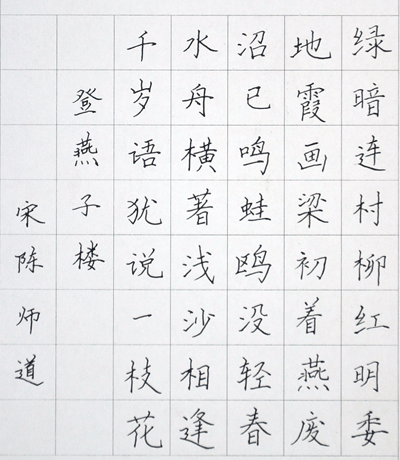 绿暗连村柳红明委
地霞画梁初着燕废
沼已鸣蛙鸥没轻春
水舟横著浅沙相逢
千岁语犹说一枝花
登燕子楼
宋陈师道